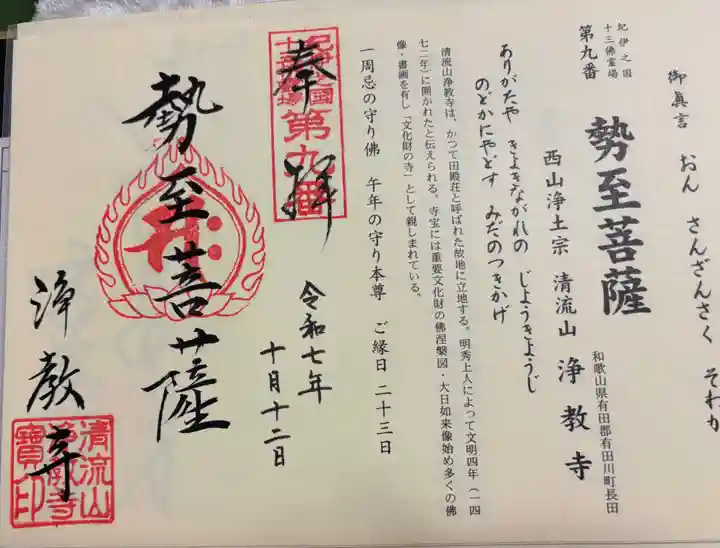 御眞言　おん　さんざんさく　そわか
紀伊之国
十三佛霊場
第九番
勢至菩薩
和歌山県有田郡有田川町長田
西山浄土宗　清流山　浄教寺
ありがたや　きよきながれの　じようきようじ
のどかにやどす　みだのつきかげ
清流山浄教寺は、かつて田殿荘と呼ばれた故地に立地する。明秀上人によって文明四年（一四
七二年）に開かれたと伝えられる。寺宝には重要文化財の佛涅槃図・大日如来像始め多くの佛
像・書画を有し「文化財の寺」として親しまれている。
一周忌の守り佛　午年の守り本尊　ご縁日　二十三日
紀伊之國
十三佛霊場
第九番
奉拝
令和七年
十月十二日
勢至菩薩
浄教寺
清流山
浄教寺
寶印